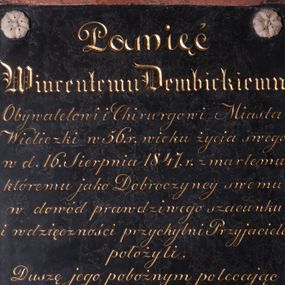 Pamięć
Wincentemu Dembickiemu
Obywatelowi i Chirurgowi Miasta
Wieliczki w 56 r. wieku życia swego
w d. 16. Sierpnia 1847. r. zmarłemu
któremu jako Dobroczyńcy swemu
w dowód prawdziwego szacunku
i wdzięczności przychylni Przyjaciele
położyli.
Duszę jego pobożnym polecając